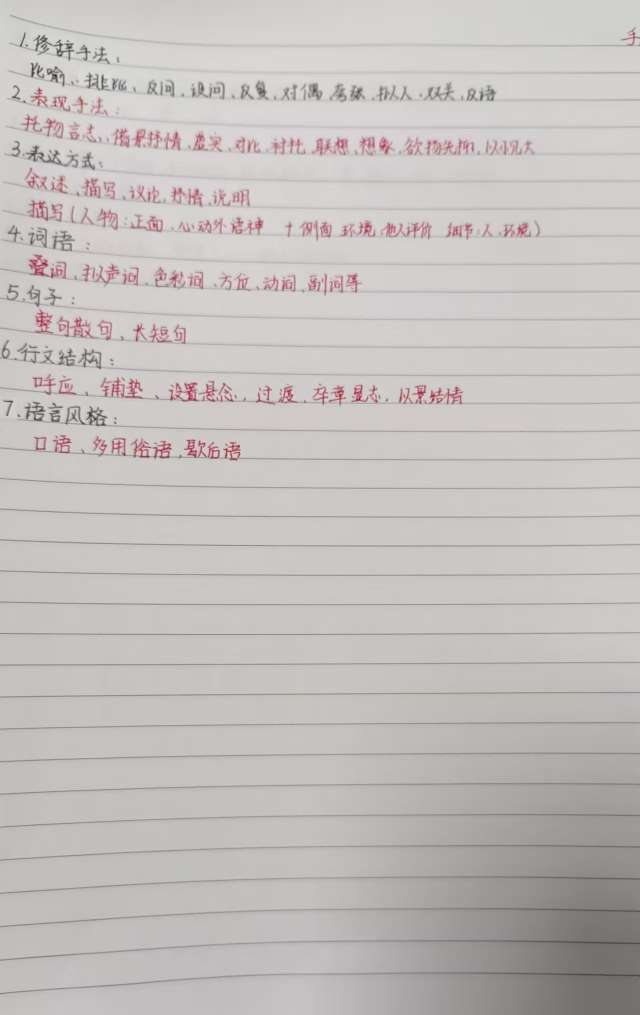 手
1.修辞手法：
比喻、排比、反问、设问、反复、对偶、夸张、拟人、双关、反语
2.表现手法：
托物言志、借景抒情、虚实、对比、衬托、联想、想象、欲扬先抑、以小见大
3.表达方式：
叙述、描写、议论、抒情、说明
描写(人物:正面、心动外语神 十 侧面 环境,他人评价 细节:人、环境)
4.词语：
叠词、拟声词、色彩词、方位、动词、副词等
5.句子：
整句散句、长短句
6.行文结构：
呼应、铺垫、设置悬念、过渡、卒章显志、以景结情
7.语言风格：
口语、多用俗语、歇后语